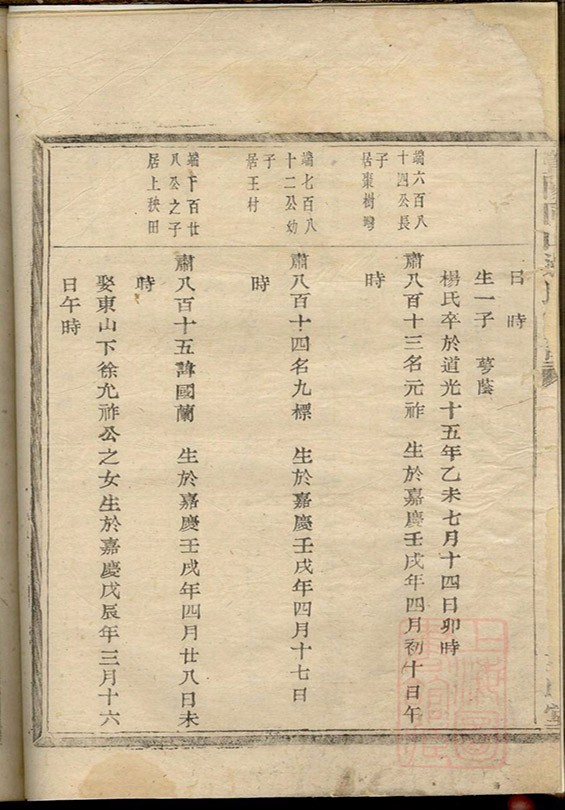 日 時
生一子 蕚蔭
楊氏卒於道光十五年乙未七月十四日卯時
端六百八
十四公長
子
居棗樹灣
肅八百十三名元祚 生於嘉慶壬戌年四月初十日午
時
端七百八
十二公幼
子
居王村
肅八百十四名九標 生於嘉慶壬戌年四月十七日
時
端下百廿
八公之子
居上秧田
肅八百十五諱國蘭 生於嘉慶壬戌年四月廿八日未
時
娶東山下徐允祚公之女生於嘉慶戊辰年三月十六
日午時